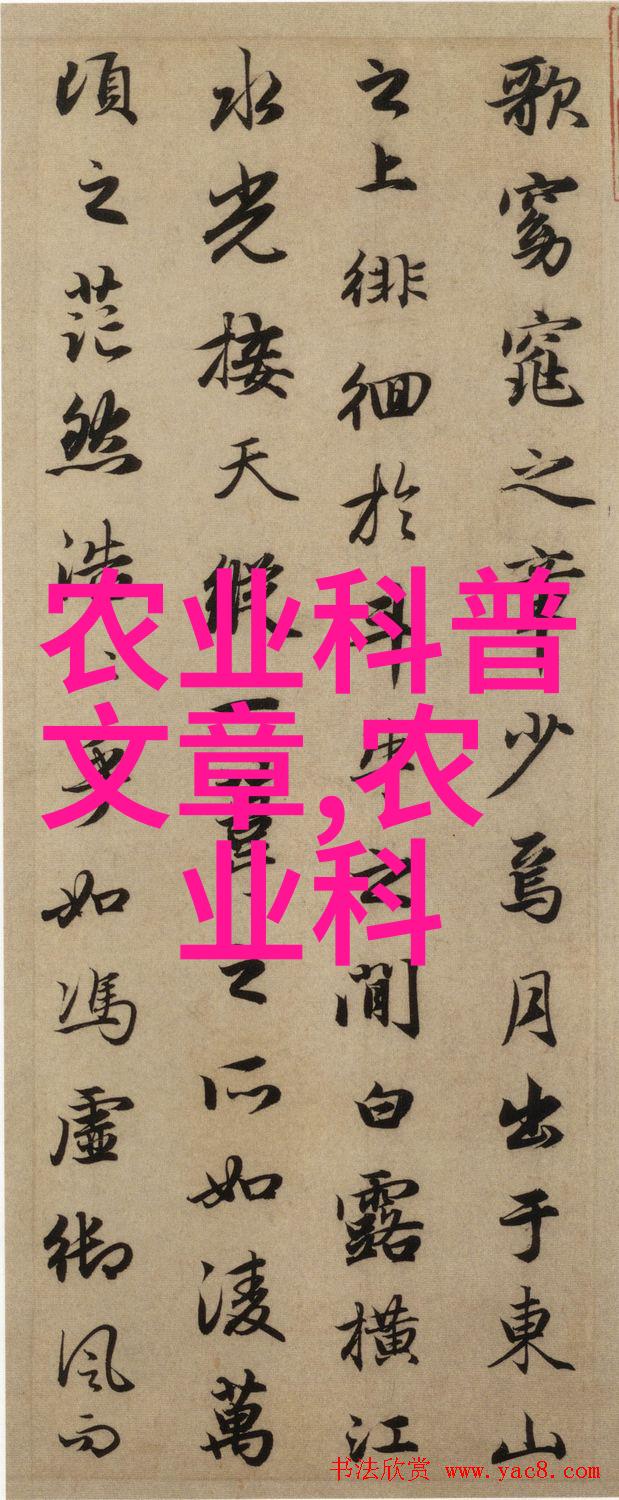 歌窈窕之章少焉月出于東山
之上徘徊於斗牛之間白露橫江
水光接天縱一葦之所如淩萬
頃之茫然浩〻乎如馮虛御風而
农业科普
文章,农
业科
书法欣赏 www.yac8.com